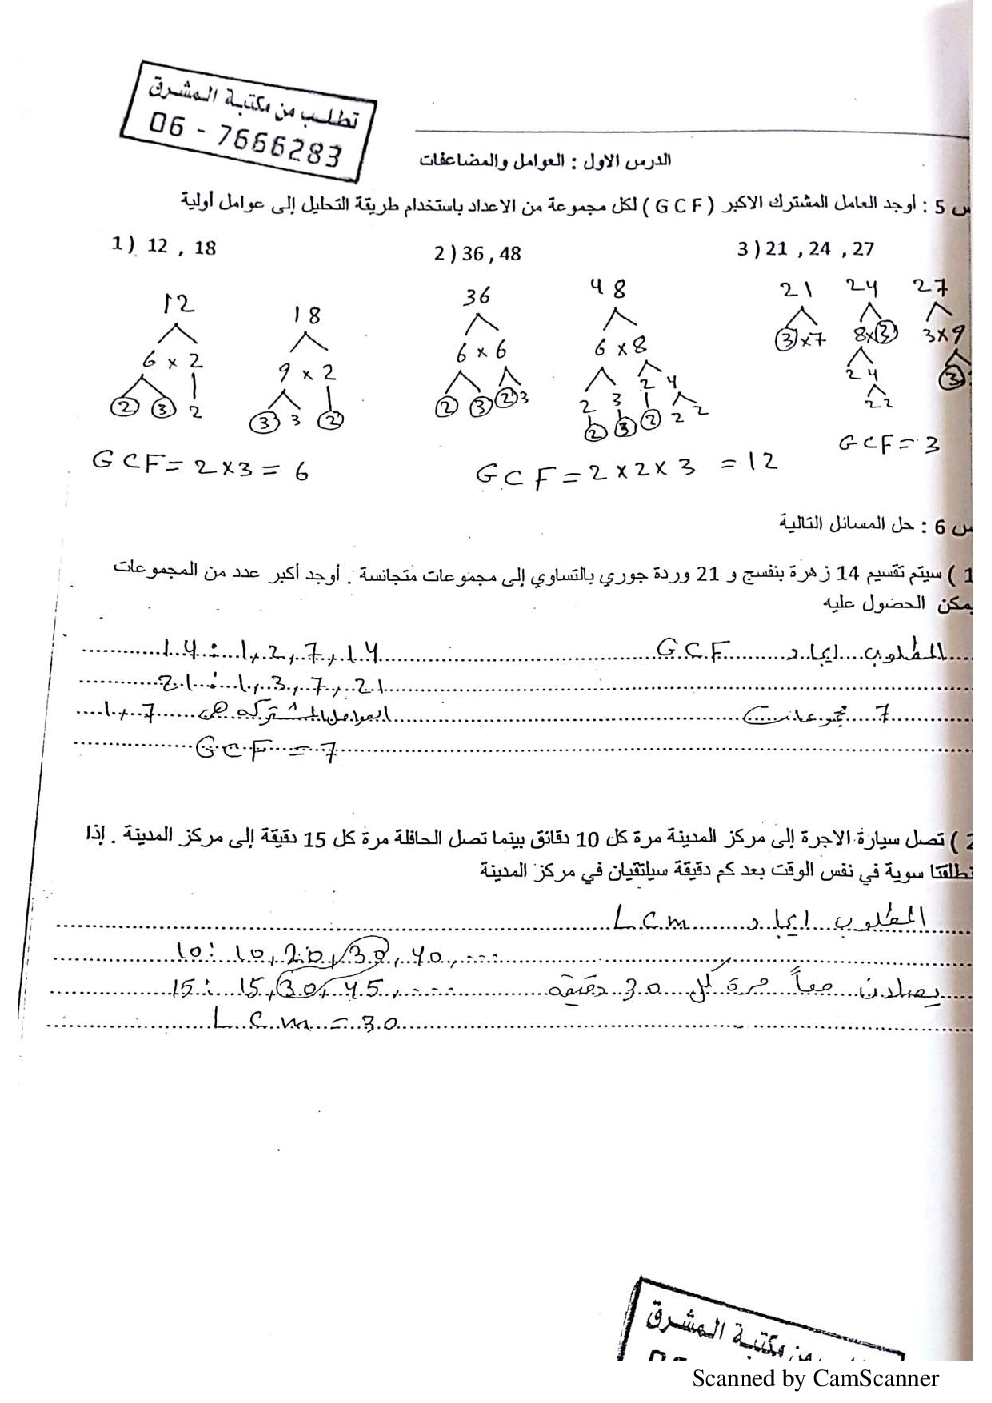 تطلب من مكتبة المشرق
06 - 7666283
الدرس الاول : العوامل والمضاعفات
س 5 : أوجد العامل المشترك الاكبر ( G C F ) لكل مجموعة من الاعداد باستخدام طريقة التحليل إلى عوامل أولية
1 ) 12 , 18
2 ) 36 , 48
3 ) 21 , 24 , 27
12
6 × 2
2 3 2
18
9 × 2
3 3 2
GCF = 2 × 3 = 6
36
6 × 6
2 3 2 3
48
6 × 8
2 3 2 4
2 3 2 2 2
GCF = 2 × 2 × 3 = 12
21 24 27
3 × 7 8 × 3 3 × 9
2 4 3
2 2
GCF = 3
س 6 : حل المسائل التالية
1 ) سيتم تقسيم 14 زهرة بنفسج و 21 وردة جوري بالتساوي إلى مجموعات متجانسة . أوجد أكبر عدد من المجموعات
يمكن الحصول عليه
المطلوب ايجاد GCF 14 : 1, 2, 7, 14
21 : 1, 3, 7, 21
7 مجموعات العوامل المشتركة هي 1, 7
GCF = 7
2 ) تصل سيارة الاجرة إلى مركز المدينة مرة كل 10 دقائق بينما تصل الحافلة مرة كل 15 دقيقة إلى مركز المدينة . إذا
تطلقتا سوية في نفس الوقت بعد كم دقيقة سيلتقيان في مركز المدينة
المطلوب ايجاد Lcm
10 : 10, 20, 30, 40, ...
يصلان معاً مرة كل 30 دقيقه 15 : 15, 30, 45, ...
Lcm = 30
تطلب من مكتبة المشرق
Scanned by CamScanner